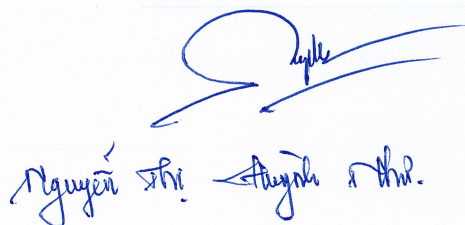 Nguyễn Thị Huỳnh Như.